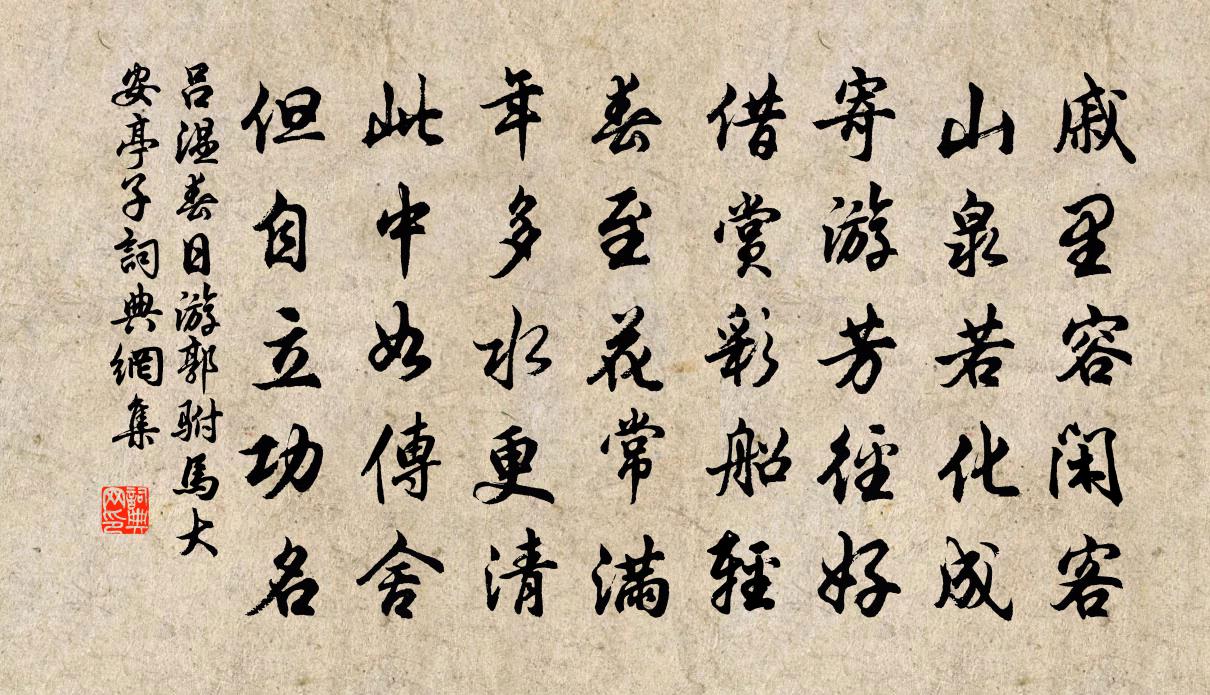 戚里容闲客
山泉若化成
寄游芳径好
借赏彩船轻
春至花常满
年多水更清
此中如传舍
但自立功名
吕温春日游郭驸马大
安亭子詞典網集
詞典网印